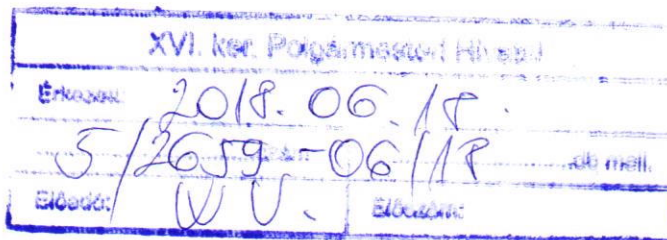 XVI. ker. Polgármesteri Hivatal
Érkezett: 2018. 06. 18.
5/2659-06/18 db mell.
Előadó: Előszám: